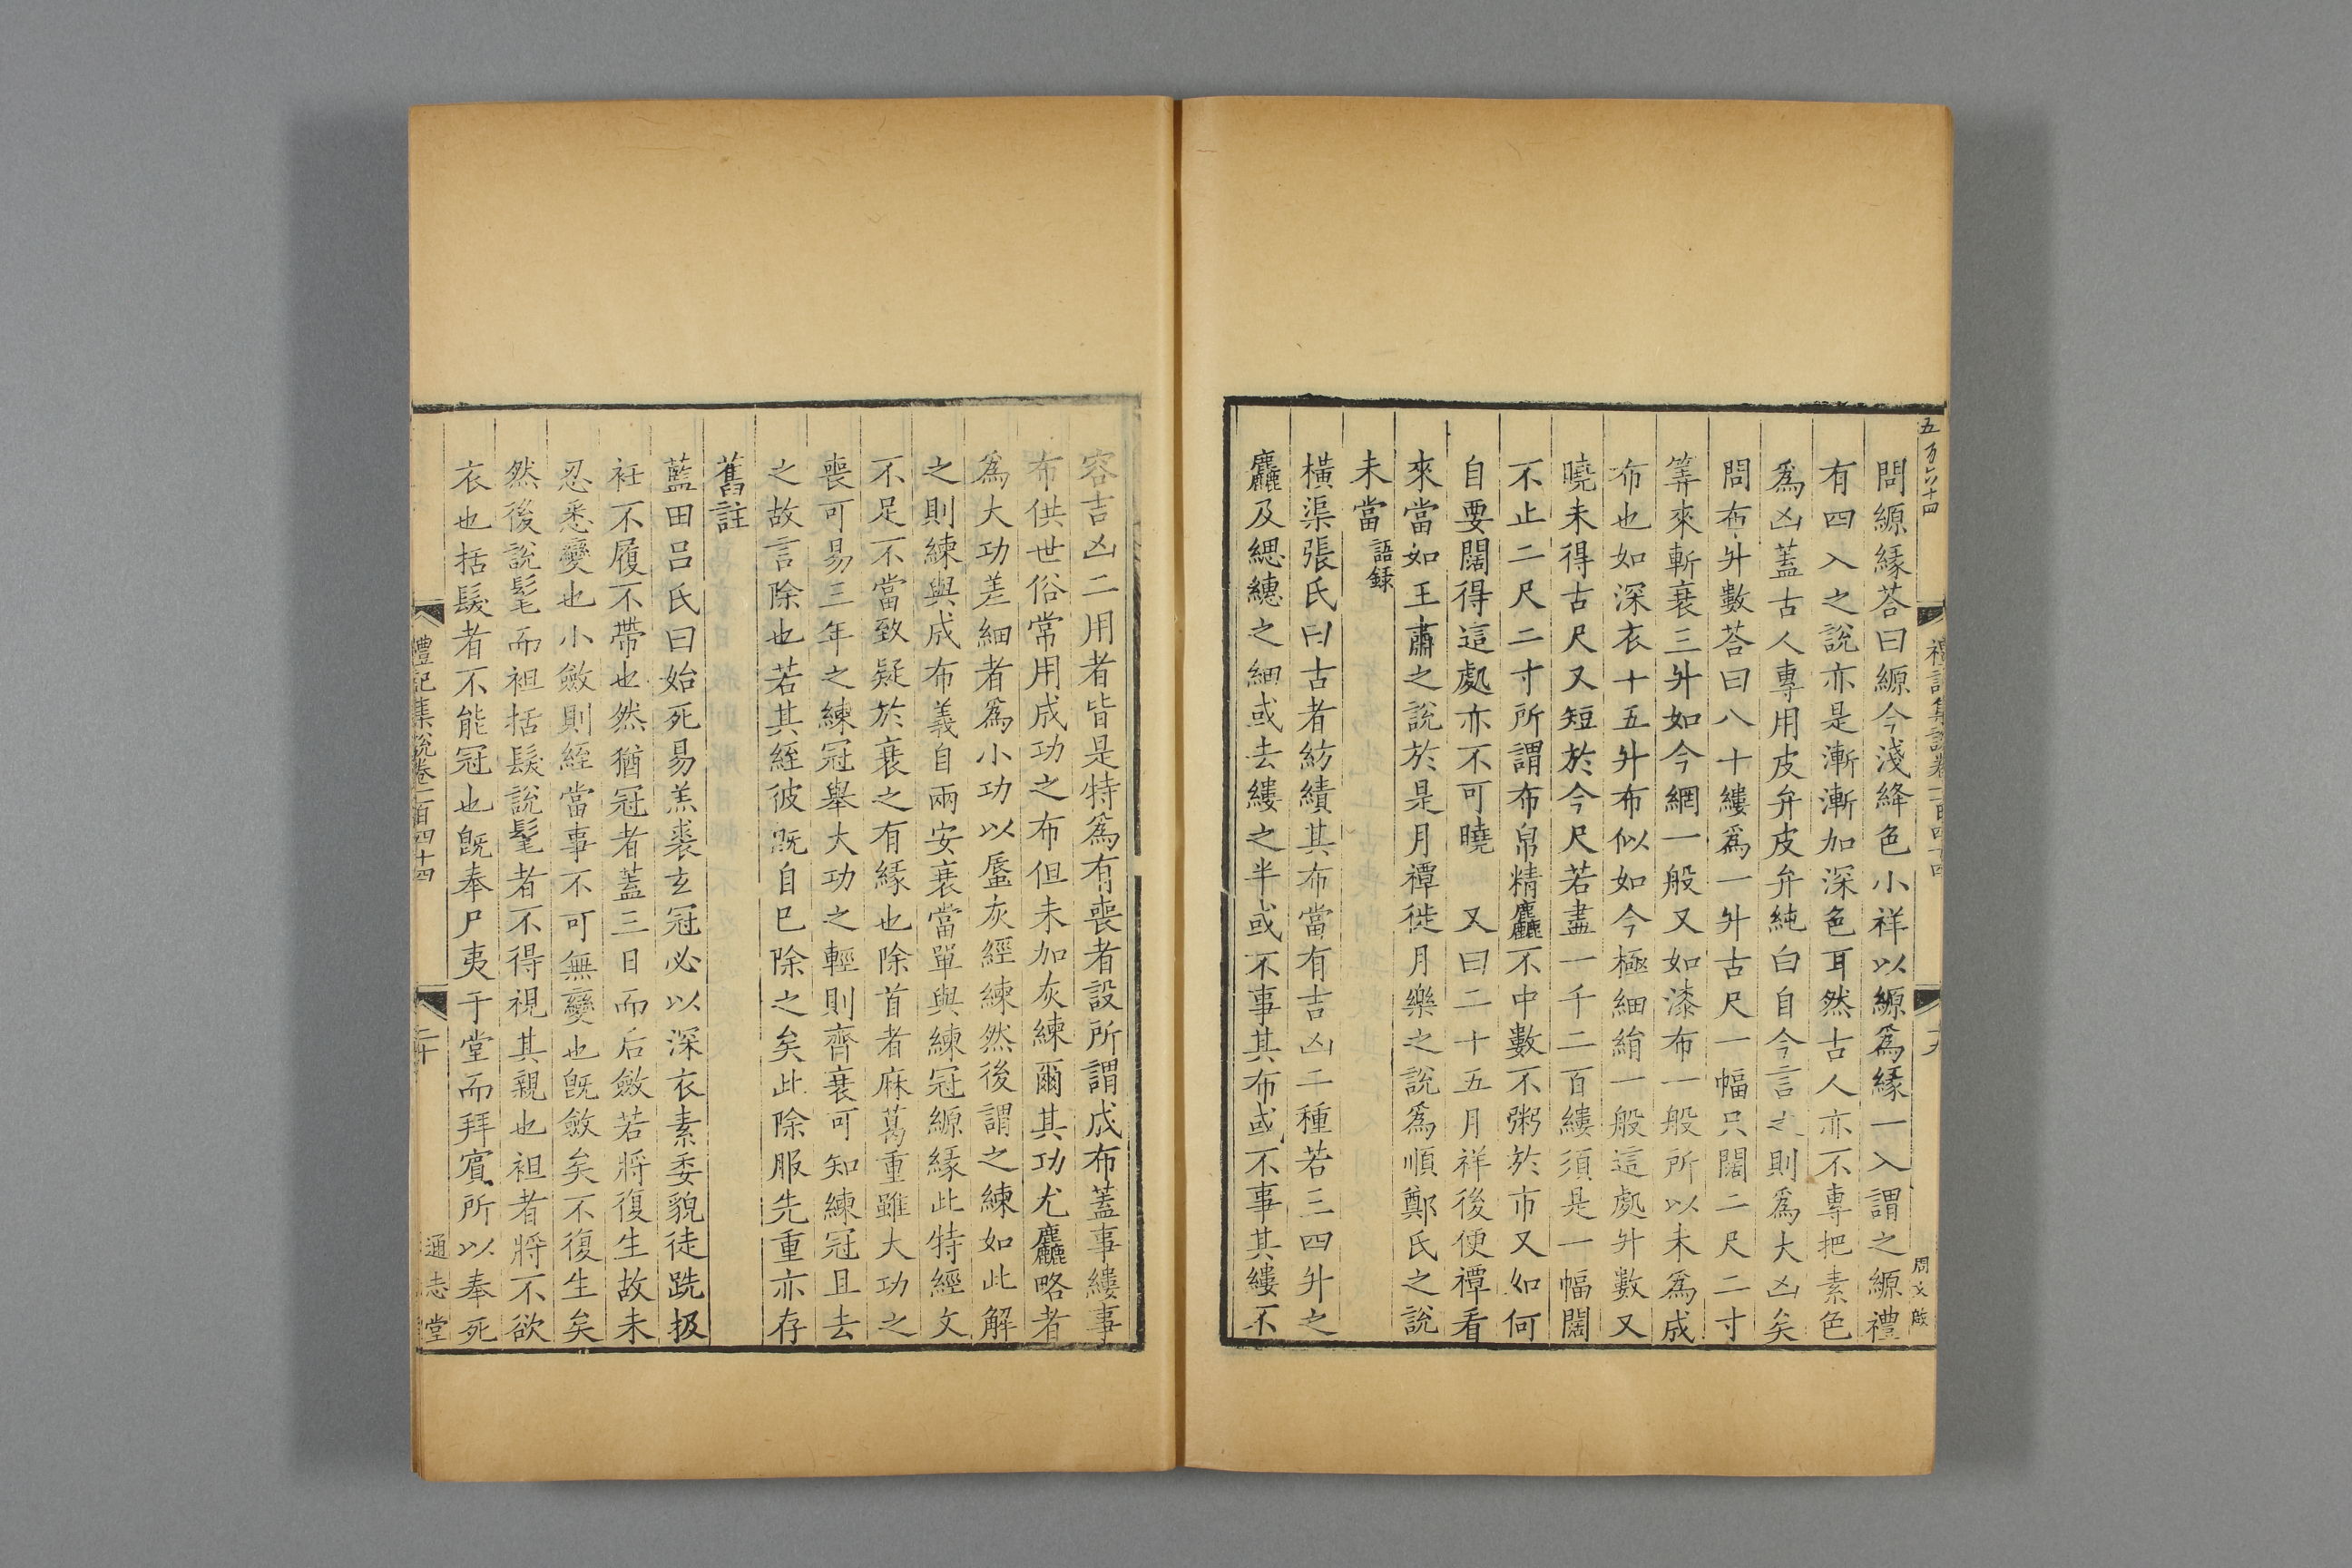 五百六十四
禮記集說卷一百四十四
十九
周文啟
問縓緣荅曰縓今淺絳色小祥以縓爲緣一入謂之縓禮
有四入之說亦是漸漸加深色耳然古人亦不專把素色
爲凶蓋古人專用皮弁皮弁純白自今言之則爲大凶矣
問布升數荅曰八十縷爲一升古尺一幅只闊二尺二寸
筭來斬衰三升如今網一般又如漆布一般所以未爲成
布也如深衣十五升布似如今極細絹一般這處升數又
曉未得古尺又短於今尺若盡一千二百縷須是一幅闊
不止二尺二寸所謂布帛精麤不中數不粥於市又如何
自要闊得這處亦不可曉　又曰二十五月祥後便禫看
來當如王肅之說於是月禫徙月樂之說爲順鄭氏之說
未當語錄
橫渠張氏曰古者紡績其布當有吉凶二種若三四升之
麤及緦繐之細或去縷之半或不事其布或不事其縷不
容吉凶二用者皆是特爲有喪者設所謂成布蓋事縷事
布供世俗常用成功之布但未加灰練爾其功尤麤略者
爲大功差細者爲小功以蜃灰經練然後謂之練如此解
之則練與成布義自兩安衰當單與練冠縓緣此特經文
不足不當致疑於衰之有緣也除首者麻葛重雖大功之
喪可易三年之練冠舉大功之輕則齊衰可知練冠且去
之故言除也若其絰彼既自巳除之矣此除服先重亦存
舊註
藍田呂氏曰始死易羔裘玄冠必以深衣素委貌徒跣扱
衽不履不帶也然猶冠者蓋三日而后斂若將復生故未
忍悉變也小斂則絰當事不可無變也既斂矣不復生矣
然後說髦而袒括髮說髦者不得視其親也袒者將不欲
衣也括髮者不能冠也既奉尸夷于堂而拜賓所以奉死
禮記集說卷一百四十四
二十
通志堂